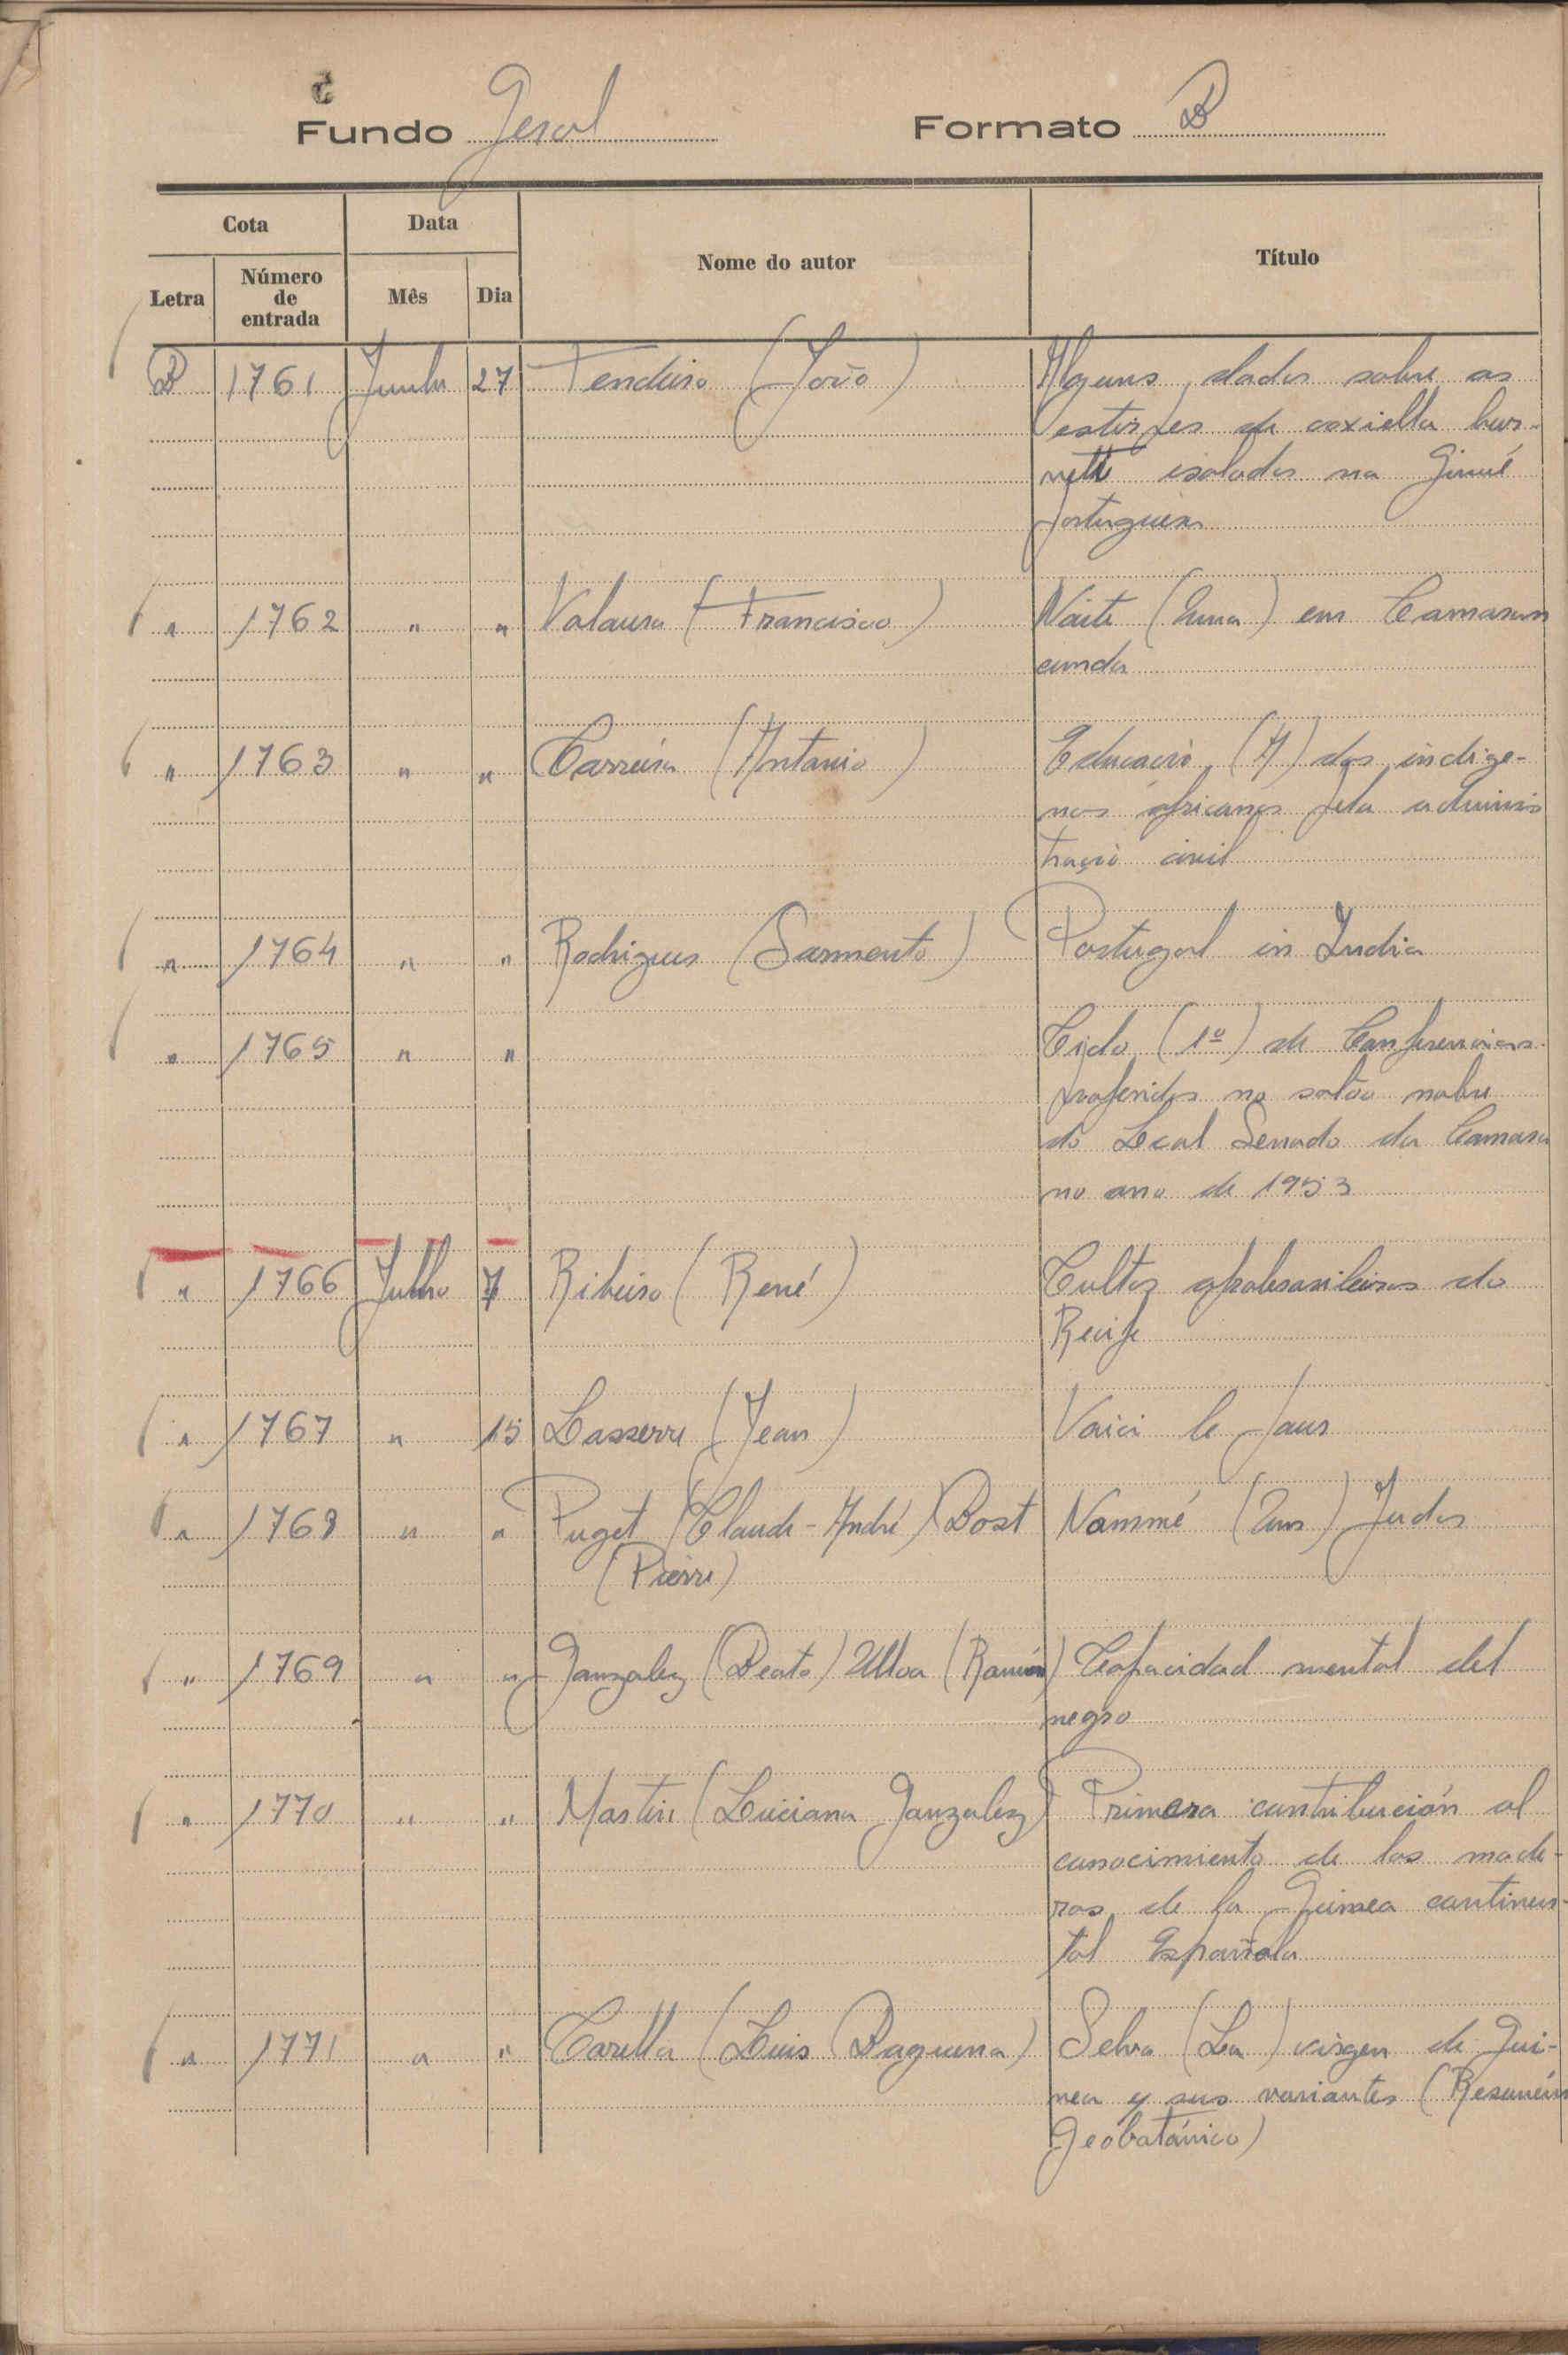 Fundo Geral Formato B
Cota Data Nome do autor Título
Letra Número de entrada Mês Dia
B 1761 Junho 27 Tendeiro (João) Alguns dados sobre as
estirpes de coxiella bur-
netti isolados na Guiné
portuguesa
" 1762 " " Valoura (Francisco) Noite (Uma) em Camaran
cunda
" 1763 " " Carreira (Antonio) Educação (A) dos indige-
nas africanos pela adminis
tração civil
" 1764 " " Rodrigues (Sarmento) Portugal in India
" 1765 " " Ciclo (1º) de Conferencias
proferidas no salão nobre
do Leal Senado da Camara
no ano de 1953
" 1766 Julho 7 Ribeiro (René) Cultos afrobrasileiros do
Recife
" 1767 " 15 Lasserre (Jean) Voici le jour
" 1768 " " Puget (Claude-André) Bost Nommé (Un) Judas
(Pierre)
" 1769 " " Gonzalez (Beato) Ulloa (Ramón) Capacidad mental del
negro
" 1770 " " Martin (Luciana Gonzalez) Primera contribución al
conocimiento de las made-
ras de la Guinea continen-
tal Española
" 1771 " " Carella (Luis Baguena) Selva (La) virgen de Gui-
nea y sus variantes (Resumén
Geobotánico)